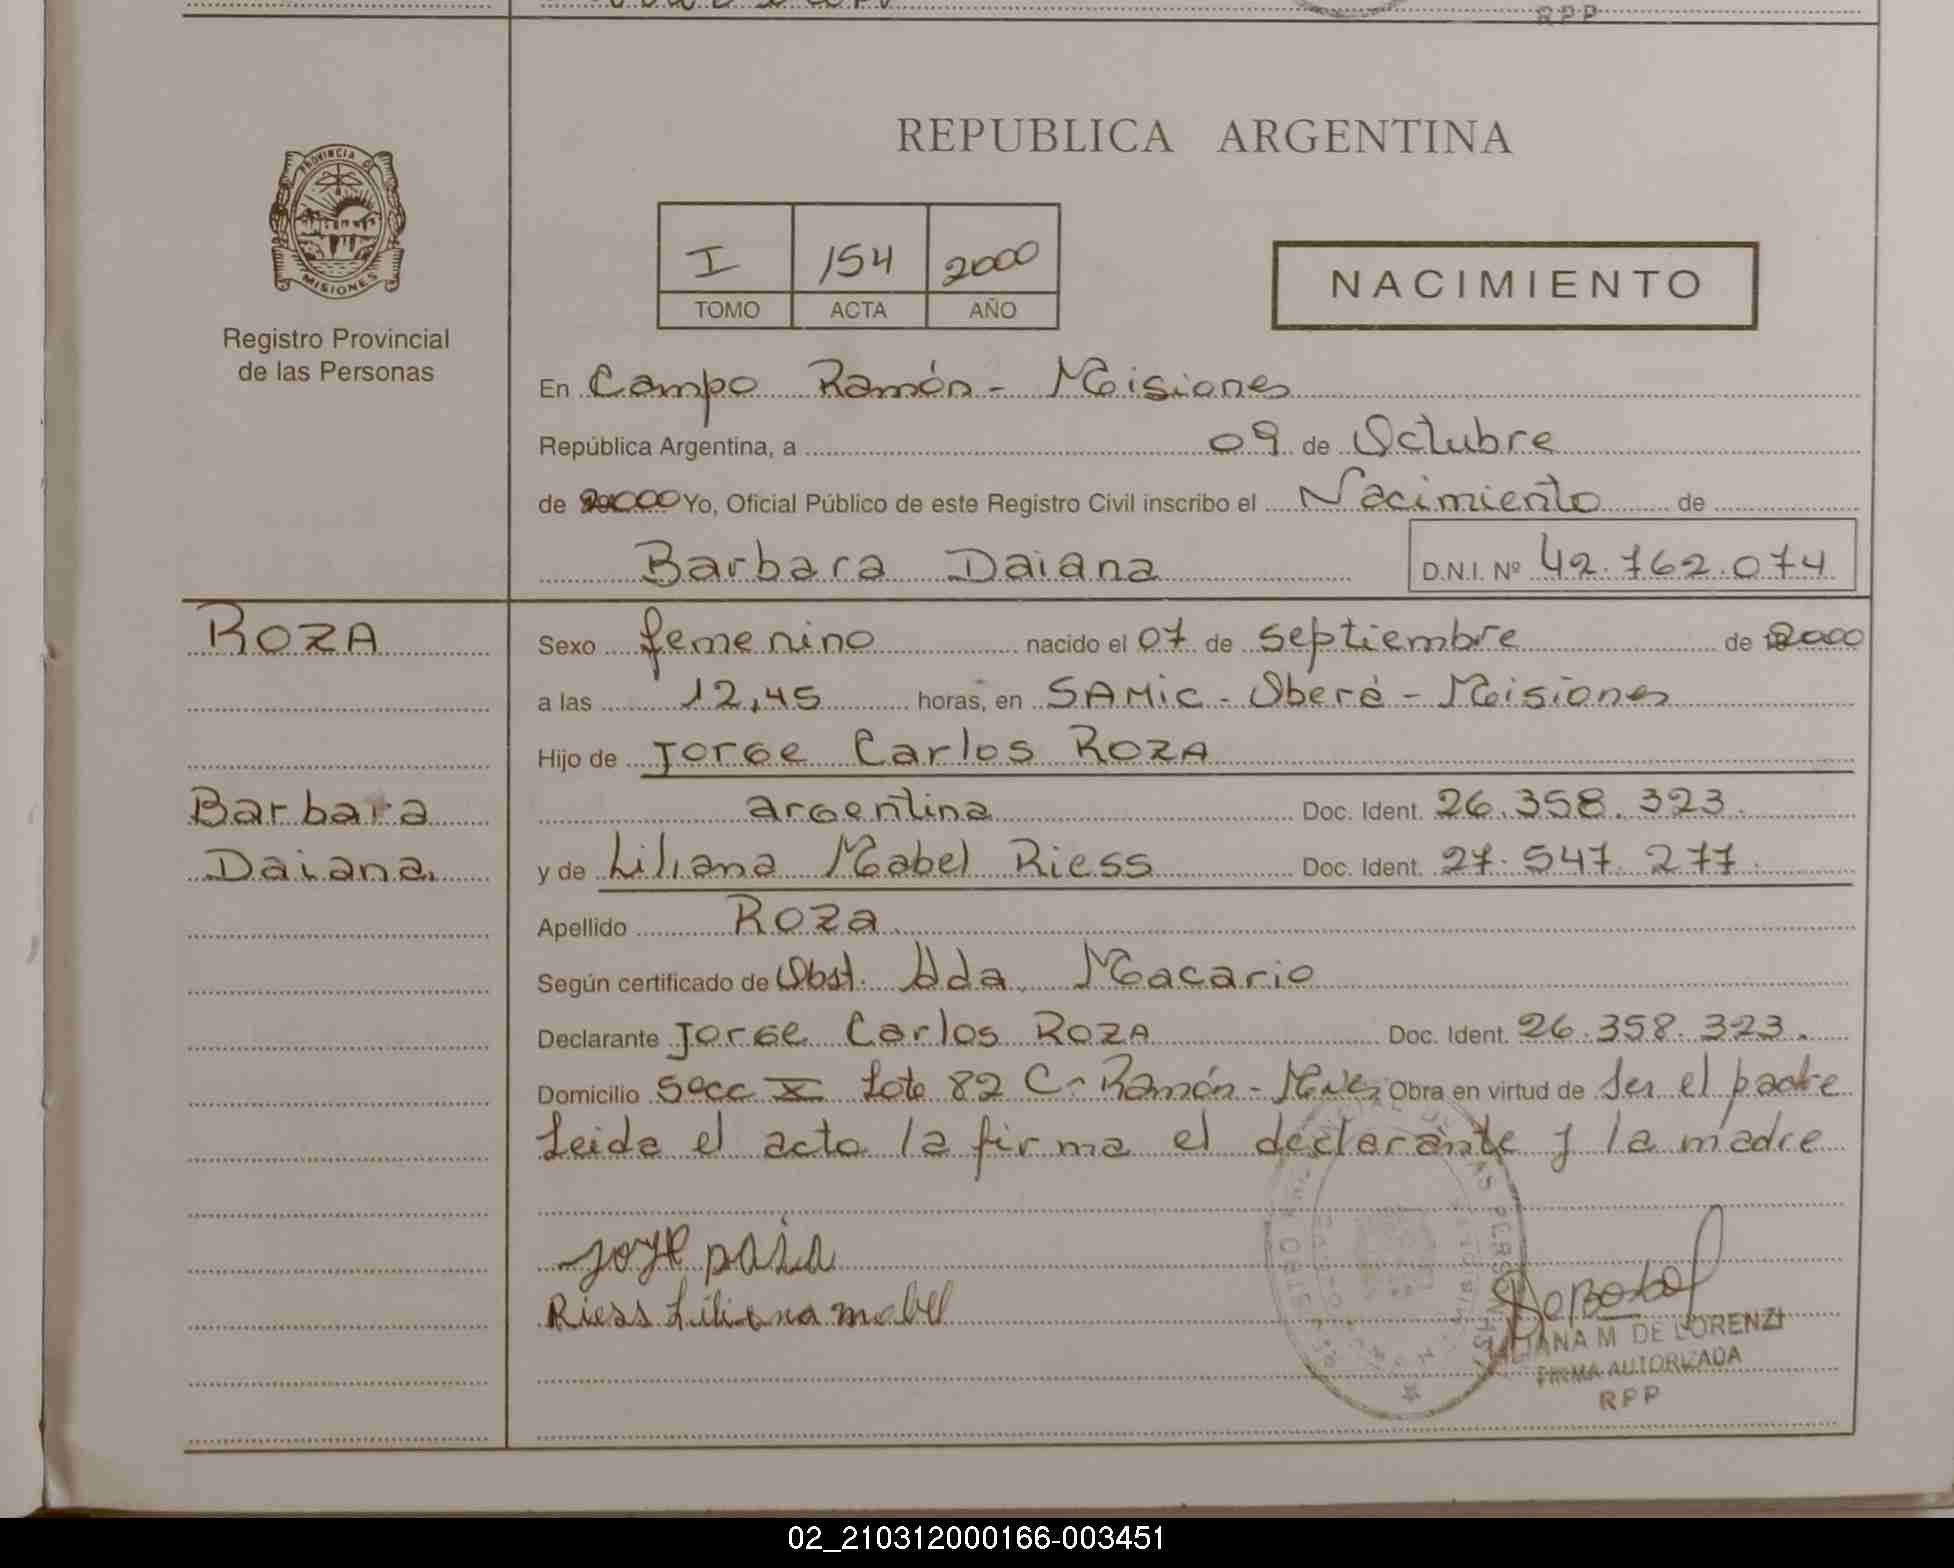 RPP
REPUBLICA ARGENTINA
PROVINCIA DE
MISIONES
Registro Provincial
de las Personas
I 154 2000
TOMO ACTA AÑO
NACIMIENTO
En Campo Ramón - Misiones
República Argentina, a 09 de Octubre
de 2000 Yo, Oficial Público de este Registro Civil inscribo el Nacimiento de
Barbara Daiana D.N.I. Nº 42.762.074
ROZA
Sexo femenino nacido el 07 de septiembre de 2000
a las 12,45 horas, en SAMIC - Oberá - Misiones
Hijo de Jorge Carlos ROZA
Barbara
argentina Doc. Ident. 26.358.323.
Daiana
y de Liliana Mabel Riess Doc. Ident. 27.547.277.
Apellido Roza
Según certificado de Obst. Macario
Declarante Jorge Carlos ROZA Doc. Ident. 26.358.323.
Domicilio Secc X Lote 82 C. Ramón - Mnes Obra en virtud de ser el padre
Leida el acta la firma el declarante y la madre
Riess Liliana mabel
DE LORENZI
FIRMA AUTORIZADA
RPP
02_210312000166-003451